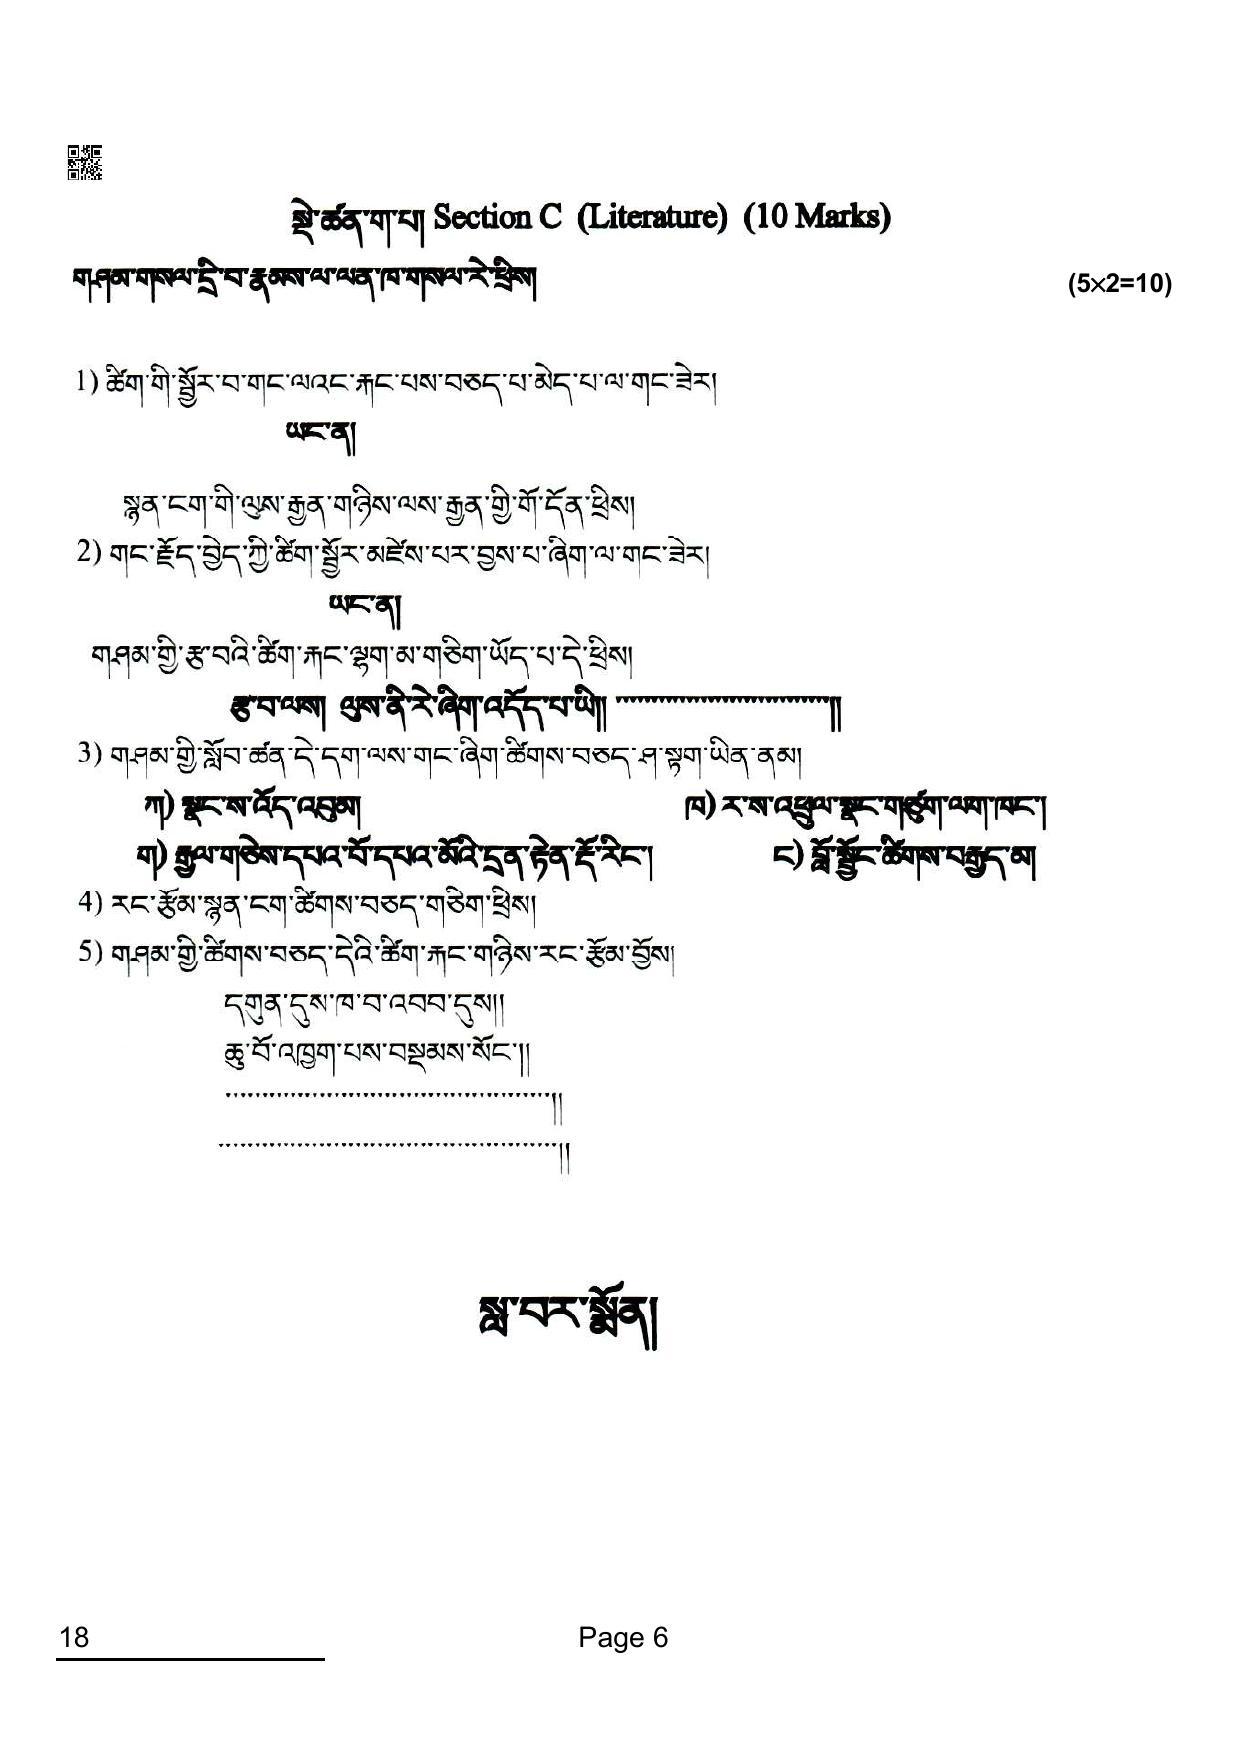 སྡེ་ཚན་ག་པ། Section C (Literature) (10 Marks)
གཤམ་གསལ་དྲི་བ་རྣམས་ལ་ལན་ཁ་གསལ་རེ་ཕྲིས། (5×2=10)
1) ཚིག་གི་སྦྱོར་བ་གང་ལའང་རྐང་པས་བཅད་པ་མེད་པ་ལ་གང་ཟེར།
ཡང་ན།
སྙན་ངག་གི་ལུས་རྒྱན་གཉིས་ལས་རྒྱན་གྱི་གོ་དོན་ཕྲིས།
2) གང་རྗོད་བྱེད་ཀྱི་ཚིག་སྦྱོར་མཛེས་པར་བྱས་པ་ཞིག་ལ་གང་ཟེར།
ཡང་ན།
གཤམ་གྱི་རྩ་བའི་ཚིག་རྐང་ལྷག་མ་གཅིག་ཡོད་པ་དེ་ཕྲིས།
རྩ་བ་ལས། ལུས་ནི་རེ་ཞིག་འདོད་པ་ཡི།། ..............................།།
3) གཤམ་གྱི་སློབ་ཚན་དེ་དག་ལས་གང་ཞིག་ཚིགས་བཅད་ཤ་སྟག་ཡིན་ནམ།
ཀ) སྣང་ས་འོད་འབུམ། ཁ) ར་ས་འཕྲུལ་སྣང་གཙུག་ལག་ཁང་།
ག) རྒྱལ་གཅེས་དཔའ་བོ་དཔའ་མོའི་དྲན་རྟེན་རྡོ་རིང་། ང) བློ་སྦྱོང་ཚིགས་བརྒྱད་མ།
4) རང་རྩོམ་སྙན་ངག་ཚིགས་བཅད་གཅིག་ཕྲིས།
5) གཤམ་གྱི་ཚིགས་བཅད་དེའི་ཚིག་རྐང་གཉིས་རང་རྩོམ་བྱོས།
དགུན་དུས་ཁ་བ་འབབ་དུས།།
ཆུ་བོ་འཁྱག་པས་བསྡམས་སོང་།།
.............................................།།
...............................................།།
སླ་བར་སྨོན།
18 Page 6